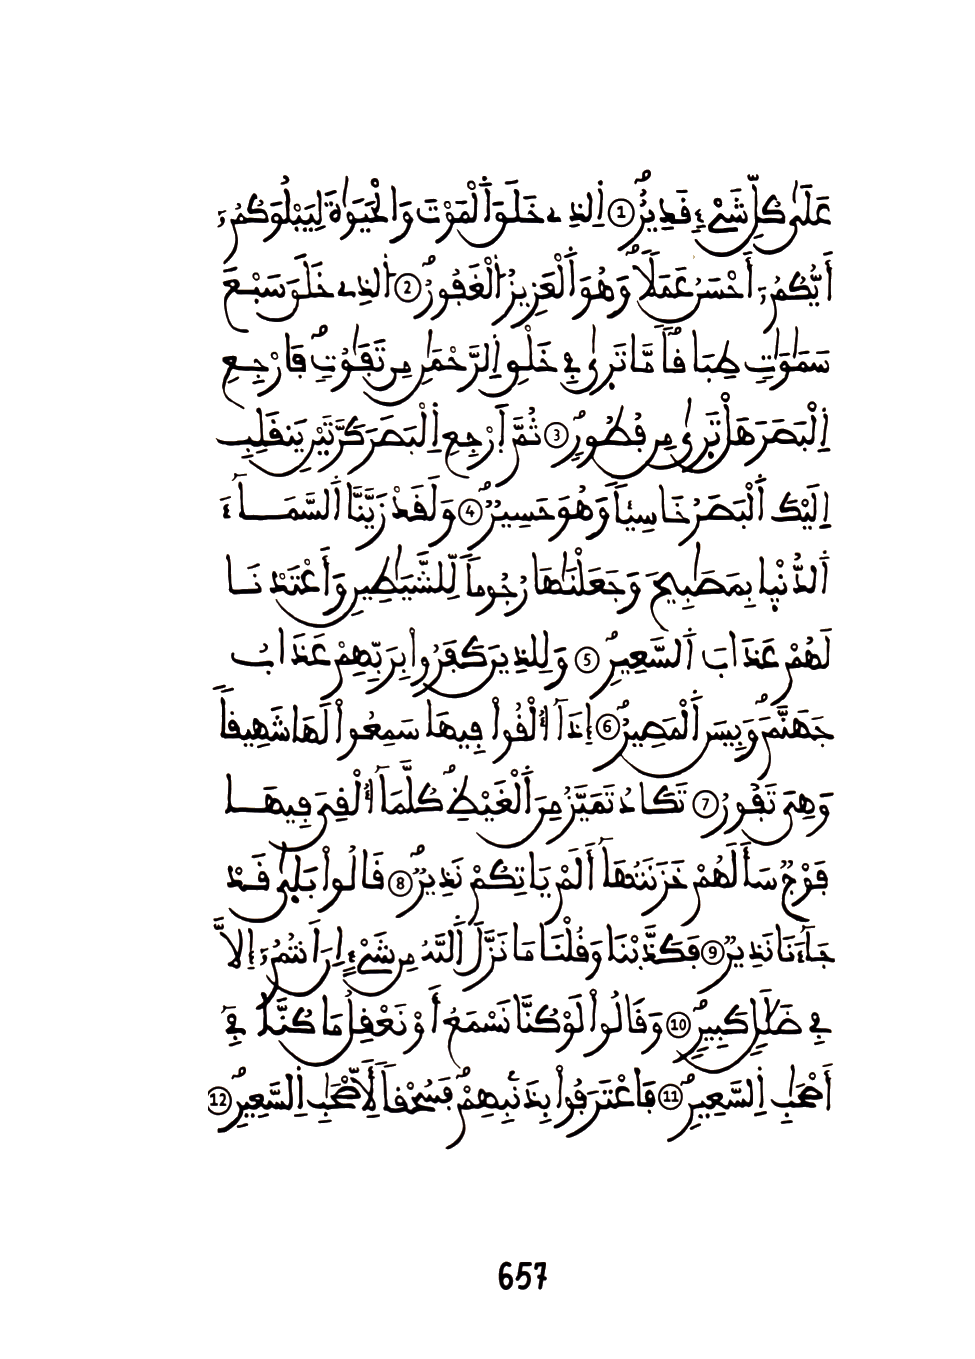 عَلَىٰ كُلِّ شَےْءٖ فَدِيرٌ ① اِ۬لذِے خَلَقَ اَ۬لْمَوْتَ وَالْحَيَوٰةَ لِيَبْلُوَكُمُۥٓ
أَيُّكُمُۥٓ أَحْسَنُ عَمَلاٗ وَهُوَ اَ۬لْعَزِيزُ اُ۬لْغَفُورُ ② اُ۬لذِے خَلَقَ سَبْعَ
سَمَٰوَٰتٖ طِبَافاٗ مَّا تَر۪ىٰ فِے خَلْقِ اِ۬لرَّحْمَٰنِ مِن تَفَٰوُتٖ فَارْجِعِ
اِ۬لْبَصَرَ هَلْ تَر۪ىٰ مِن فُطُورٖ ③ ثُمَّ اَ۪رْجِعِ اِ۬لْبَصَرَ كَرَّتَيْنِ يَنفَلِبِ
اِلَيْكَ اَ۬لْبَصَرُ خَاسِئاٗ وَهُوَ حَسِيرٌ ④ وَلَفَدْ زَيَّنَّا اَ۬لسَّمَآءَ
اَ۬لدُّنْي۪ا بِمَصَٰبِيحَ وَجَعَلْنَٰهَا رُجُوماٗ لِّلشَّيَٰطِينِ وَأَعْتَدْنَا
لَهُمْ عَذَابَ اَ۬لسَّعِيرِ ⑤ وَلِلذِينَ كَفَرُواْ بِرَبِّهِمْ عَذَابُ
جَهَنَّمَ وَبِيسَ اَ۬لْمَصِيرُ ⑥ إِذَآ أُلْفُواْ فِيهَا سَمِعُواْ لَهَا شَهِيفاٗ
وَهِىَ تَفُورُ ⑦ تَكَادُ تَمَيَّزُ مِنَ اَ۬لْغَيْظِ كُلَّمَآ أُلْفِىَ فِيهَا
فَوْجٞ سَأَلَهُمْ خَزَنَتُهَآ أَلَمْ يَاتِكُمْ نَذِيرٌ ⑧ فَالُواْ بَل۪ىٰ فَدْ
جَآءَنَا نَذِيرٞ ⑨ فَكَذَّبْنَا وَفُلْنَا مَا نَزَّلَ اَ۬للَّهُ مِن شَےْءٍ اِنَ اَنتُمُۥٓ إِلاَّ
فِے ضَلَٰلٖ كَبِيرٖ ⑩ وَفَالُواْ لَوْ كُنَّا نَسْمَعُ أَوْ نَعْفِلُ مَا كُنَّا فِےٓ
أَصْحَٰبِ اِ۬لسَّعِيرِ ⑪ فَاعْتَرَفُواْ بِذَنۢبِهِمْ فَسُحْفاٗ لِّأَصْحَٰبِ اِ۬لسَّعِيرِ ⑫
657